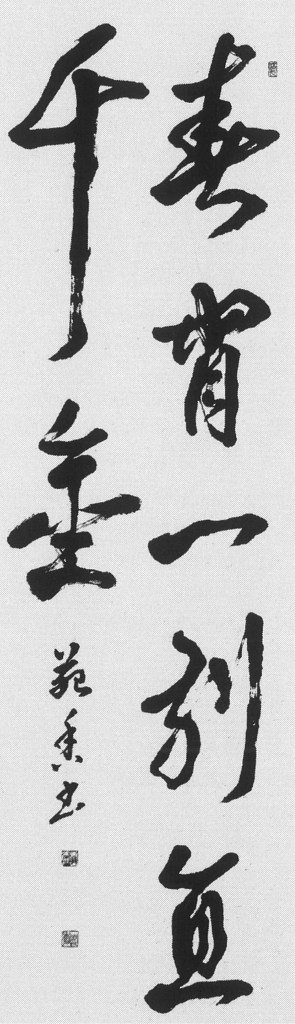 春宵一刻直
千金
苑香書